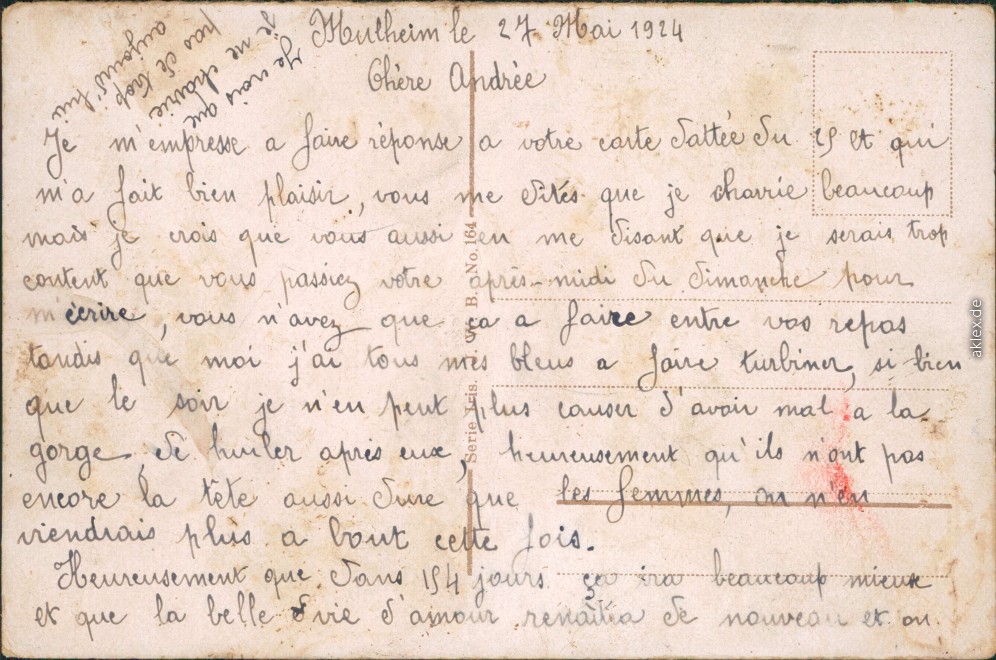 Mulheim le 27 Mai 1924
Chère Andrée
Je m'empresse a faire réponse a votre carte dattée du 25 et qui
m'a fait bien plaisir, vous me dites que je charrie beaucoup
mais je crois que vous aussi en me disant que je serais trop
content que vous passiez votre après-midi du dimanche pour
m'écrire, vous n'avez que ça a faire entre vos repas
tandis que moi j'ai tous mes bleus a faire turbiner, si bien
que le soir je n'en peut plus causer d'avoir mal a la
gorge, de hurler après eux, heureusement qu'ils n'ont pas
encore la tête aussi dure que les femmes, on n'en
viendrais plus a bout cette fois.
Heureusement que dans 154 jours ça ira beaucoup mieux
et que la belle vie d'amour renaîtra de nouveau et on
Je vois que
je ne charrie
pas de trop
aujourd'hui
Serie Iris. W. B. No. 164
aklex.de